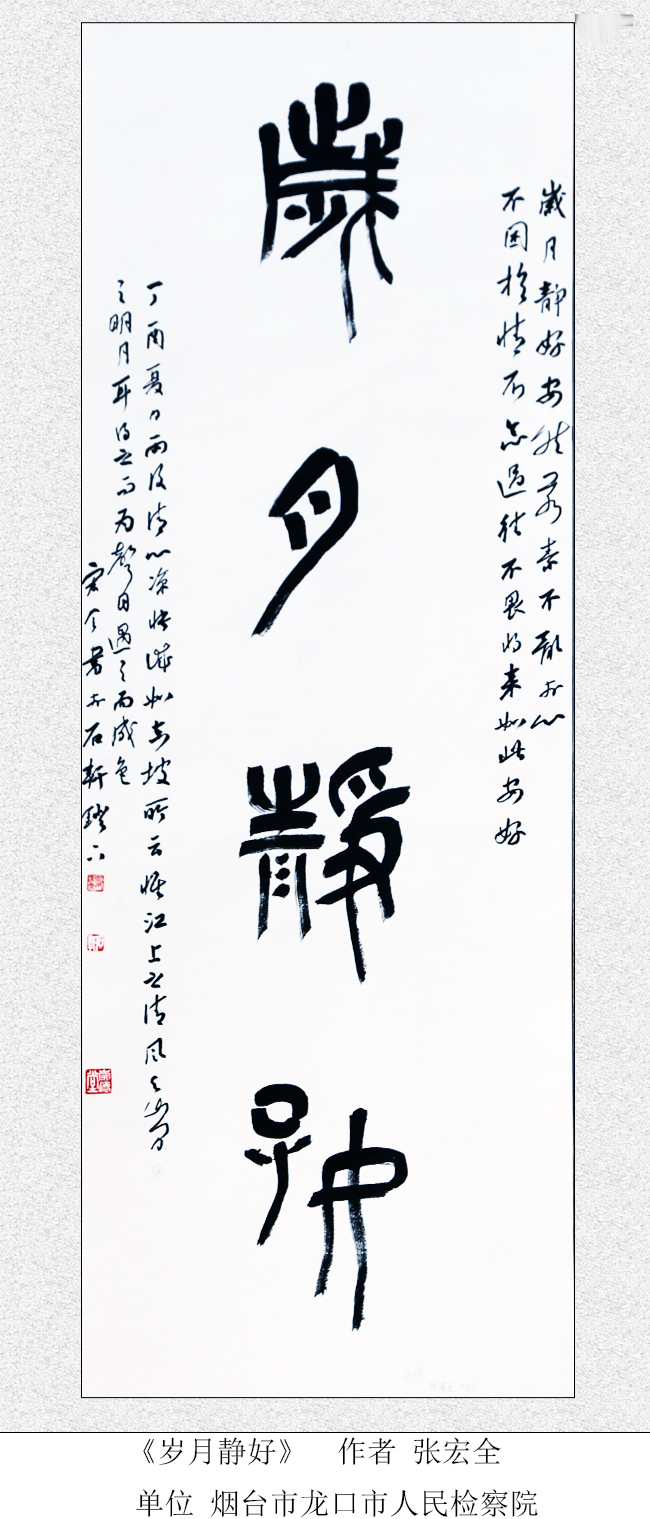 歲月靜好
歲月靜好安然若素不亂於心
不困於情不念過往不畏將來如此安好
丁酉夏日雨後清心涼快誠如東坡所云惟江上之清風與山間
之明月耳得之而為聲目遇之而成色
宏全書於石軒燈下
《岁月静好》 作者 张宏全
单位 烟台市龙口市人民检察院